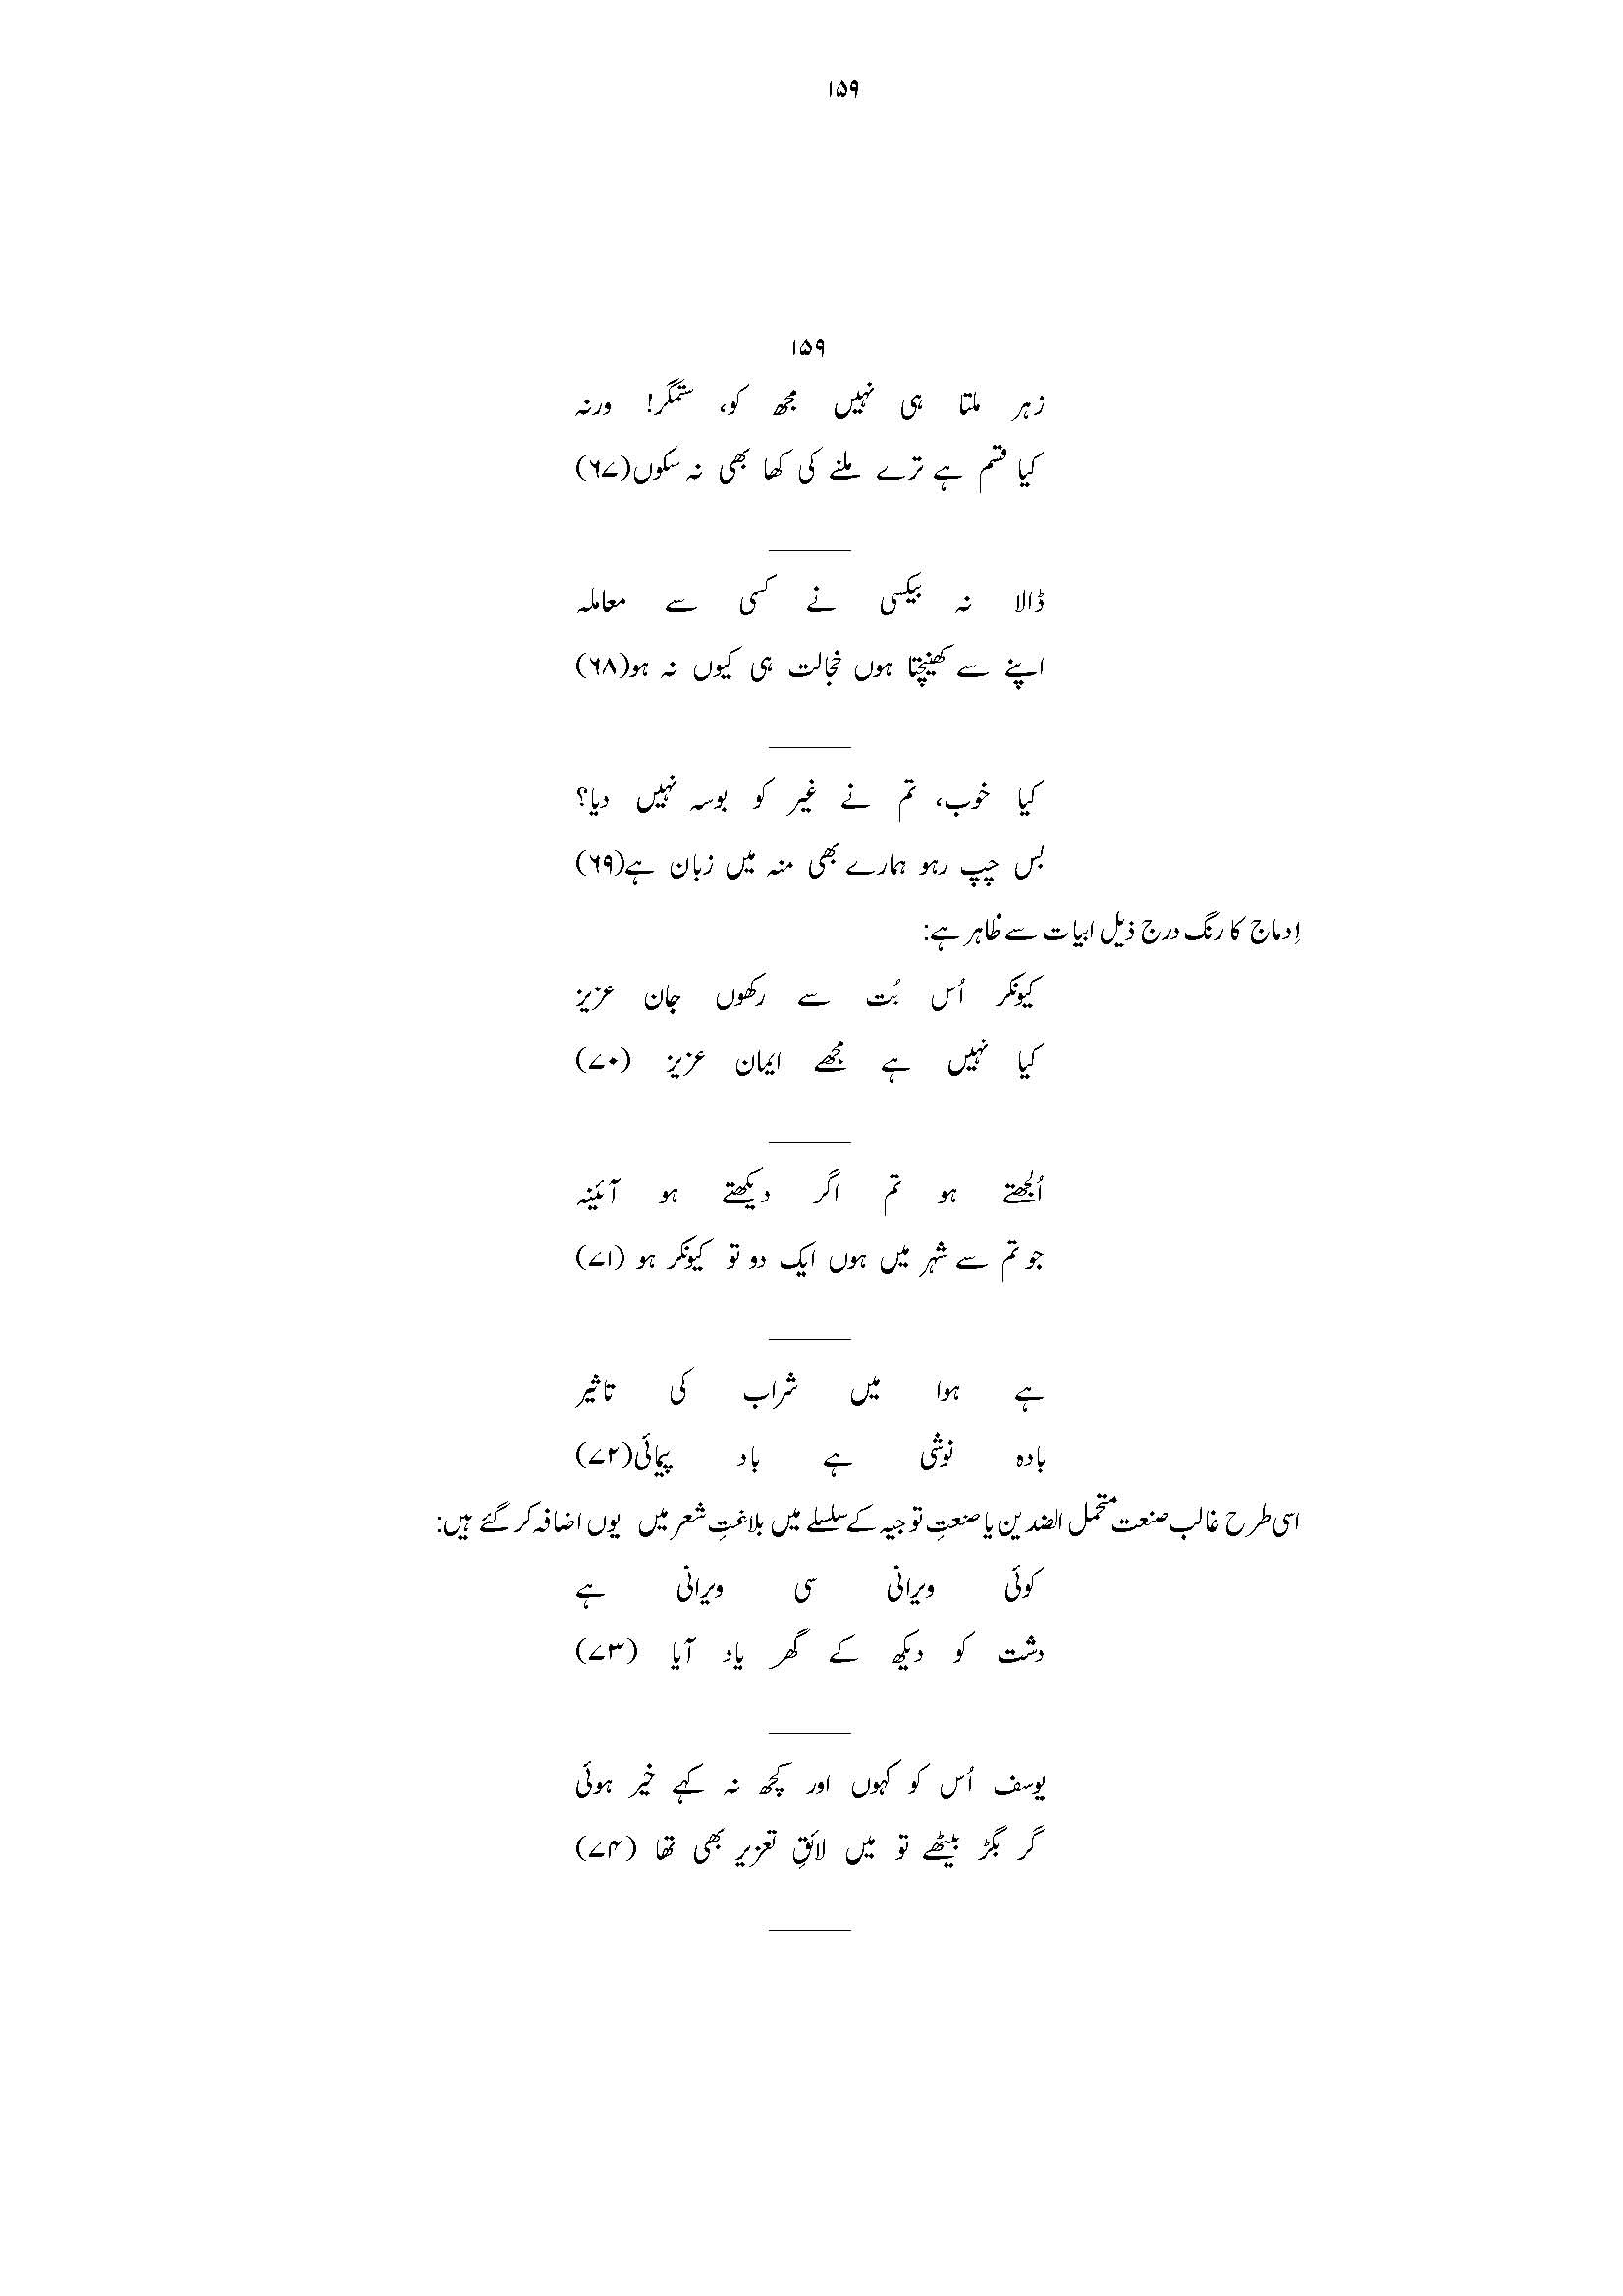 ۱۵۹
۱۵۹
زہر ملتا ہی نہیں مجھ کو، ستمگر! ورنہ
کیا قسم ہے ترے ملنے کی کھا بھی نہ سکوں(۶۷)
ڈالا نہ بیکسی نے کسی سے معاملہ
اپنے سے کھینچتا ہوں خجالت ہی کیوں نہ ہو(۶۸)
کیا خوب، تم نے غیر کو بوسہ نہیں دیا؟
بس چپ رہو ہمارے بھی منہ میں زبان ہے(۶۹)
اِدماج کا رنگ درج ذیل ابیات سے ظاہر ہے:
کیونکر اُس بُت سے رکھوں جان عزیز
کیا نہیں ہے مجھے ایمان عزیز (۷۰)
اُلجھتے ہو تم اگر دیکھتے ہو آئینہ
جو تم سے شہر میں ہوں ایک دو تو کیونکر ہو (۷۱)
ہے ہوا میں شراب کی تاثیر
بادہ نوشی ہے باد پیمائی(۷۲)
اسی طرح غالب صنعت متحمل الضدین یا صنعتِ توجیہ کے سلسلے میں بلاغتِ شعر میں یوں اضافہ کر گئے ہیں:
کوئی ویرانی سی ویرانی ہے
دشت کو دیکھ کے گھر یاد آیا (۷۳)
یوسف اُس کو کہوں اور کچھ نہ کہے خیر ہوئی
گر بگڑ بیٹھے تو میں لائقِ تعزیر بھی تھا (۷۴)